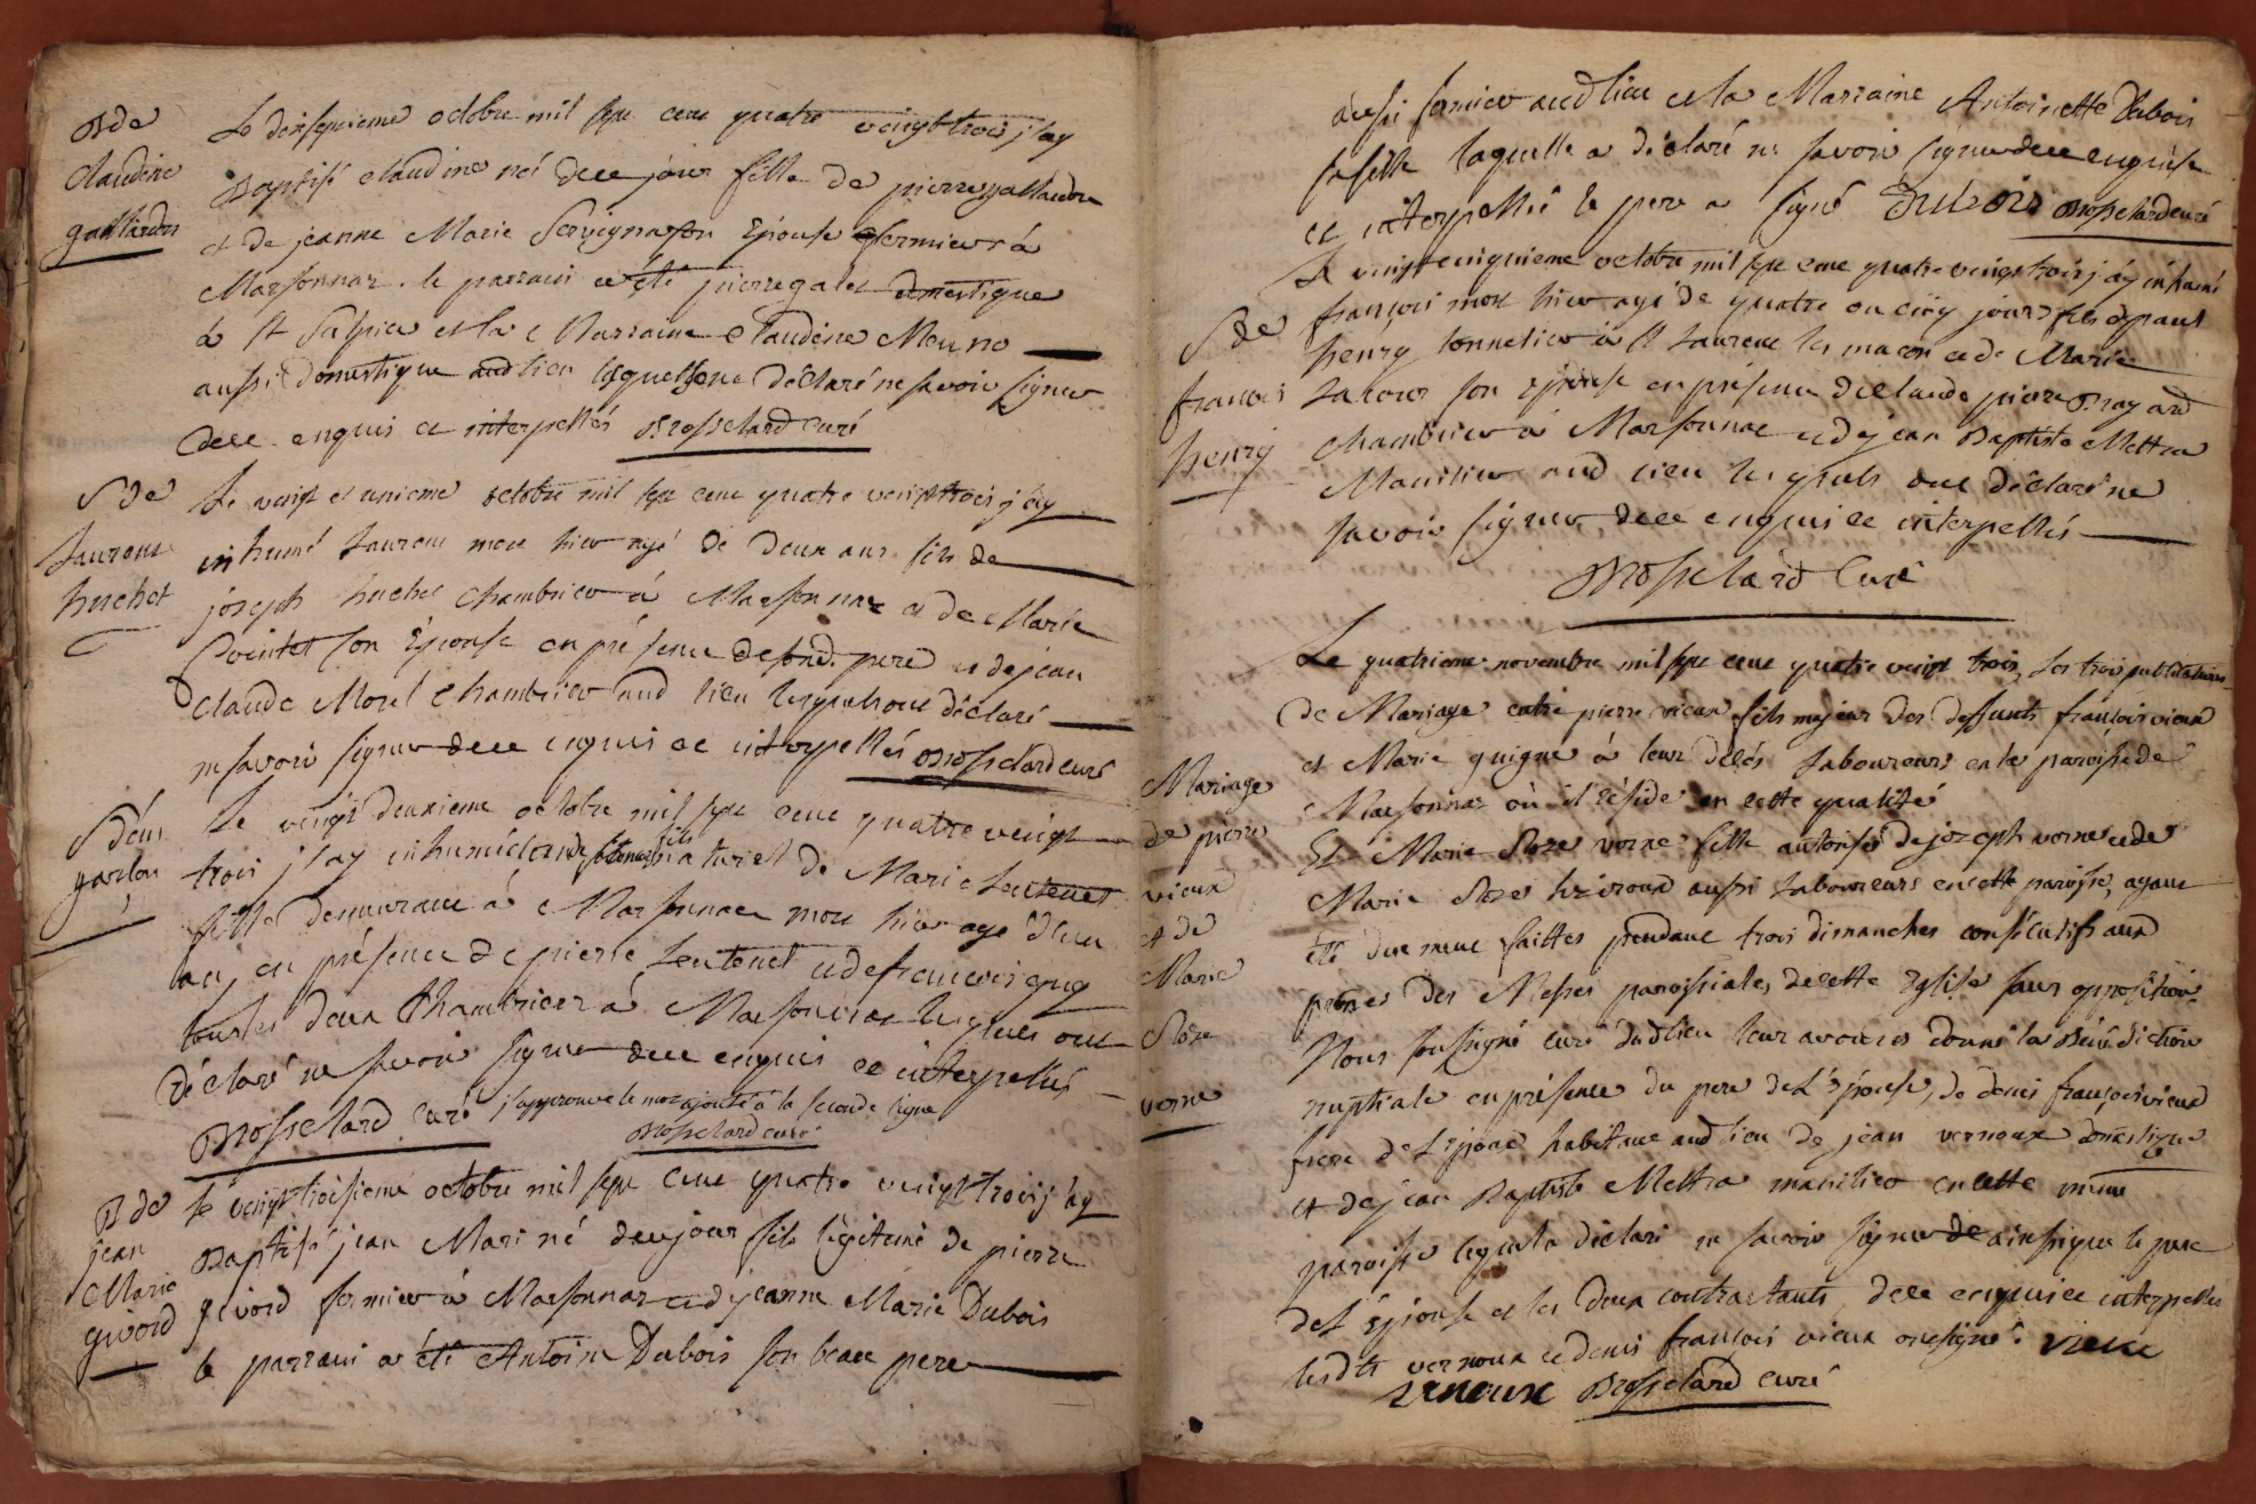 B de
Claudine
gallardon
Le dixseptieme octobre mil sept cent quatre vingt trois j'ay
Baptisé claudine né dece jour fille de pierre
et de jeanne Marie Son Epouse fermier à
Marsonnaz. le parrain a été pierre galet domestique
à St Sulpice et la Marraine Claudine Meuno
aussi domestique aud lieu lesquels ont déclaré ne savoir signer
dece enquis et interpellés Brosselard curé
S de
Laurent
huchet
Le vingt et unieme octobre mil sept cent quatre vingt trois j'ay
inhumé Laurent mort hier agé de deux ans fils de
joseph huchet chambrier à Marsonnaz et de Marie
Cointet son Epouse en présence desond. pere et de jean
claude Morel chambrier aud lieu lesquels ont déclaré
ne savoir signer dece enquis et interpellés Brosselard curé
S d'un
garson
Le vingt deuxieme octobre mil sept cent quatre vingt
trois j'ay inhumé claude fils naturel de Marie Leutenet
fille demeurant à Marsonnaz mort hier agé d'un
an, en présence de pierre Leutenet et de francois
tous les deux Chambriers à Marsonnaz lesquels ont
déclaré ne savoir signer dece enquis et interpellés
Brosselard curé j'approuve le mot ajouté à la seconde ligne
Brosselard curé
B de
jean
Marie
givord
Le vingt troisieme octobre mil sept cent quatre vingt trois j'ay
Baptisé jean Mari né dece jour fils légitime de pierre
givord fermier à Marsonnaz et de jeanne Marie Dubois
le parrain a été Antoine Dubois son beau pere
aussi fermier aud lieu et la Marraine Antoinette Dubois
sa fille laquelle a déclaré ne savoir signer dece enquise
et interpellée le pere a signé Dubois Brosselard curé
S de
francois
henry
Le vingt cinquieme octobre mil sept cent quatre vingt trois j'ay inhumé
françois mort hier agé de quatre ou cinq jours fils de paul
henry tonnelier à St Laurent les macon et de Marie
Lacour son epouse en présence de claude pierre Brayard
chambrier à Marsonnaz et de jean Baptiste Mettra
Manilier aud lieu lesquels ont déclaré ne
savoir signer dece enquis et interpellés
Brosselard Curé
Mariage
de pierre
vieux
et de
Marie
Rose
vorne
Le quatrieme novembre mil sept cent quatre vingt trois, les trois publications
de Mariage entre pierre vieux fils majeur des deffunts francois vieux
et Marie guigue à leur décés Laboureurs en la paroisse de
Marsonnaz où il réside en cette qualité
Et Marie Rose vorne fille autorisée de joseph vorne et de
Marie Rose aussi Laboureurs en cette paroisse, ayant
été duement faittes pendant trois dimanches consécutifs aux
prônes des Messes paroissiales de cette Eglise sans opposition
Nous soussigné curé dud lieu leur avons donné la Bénédiction
nuptiale en présence du pere de L'épouse, de denis françois vieux
frere de L'epoux habitant aud lieu de jean vernoux domestique
et de jean Baptiste Mettra manilier en cette meme
paroisse lequel a déclaré ne savoir signer de ainsi que le pere
de L'épouse et les deux contractants, dece enquis et interpellés
lesdts vernoux et denis françois vieux ont signé. vieux
vernoux Brosselard curé